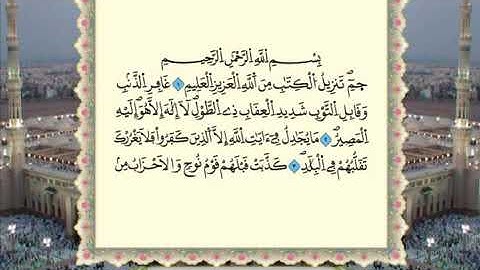 بِسْمِ اللَّهِ الرَّحْمَٰنِ الرَّحِيمِ
حمٓ تَنزِيلُ الْكِتَٰبِ مِنَ اللَّهِ الْعَزِيزِ الْعَلِيمِ ١ غَافِرِ الذَّنۢبِ
وَقَابِلِ التَّوْبِ شَدِيدِ الْعِقَابِ ذِے الطَّوْلِ لَا إِلَٰهَ إِلَّا هُوَ إِلَيْهِ
الْمَصِيرُ ٢ مَا يُجَٰدِلُ فِےٓ ءَايَٰتِ اللَّهِ إِلَّا الَّذِينَ كَفَرُوا فَلَا يَغْرُرْكَ
تَقَلُّبُهُمْ فِے الْبِلَٰدِ ٣ كَذَّبَتْ قَبْلَهُمْ قَوْمُ نُوحٍ وَالْأَحْزَابُ مِنۢ